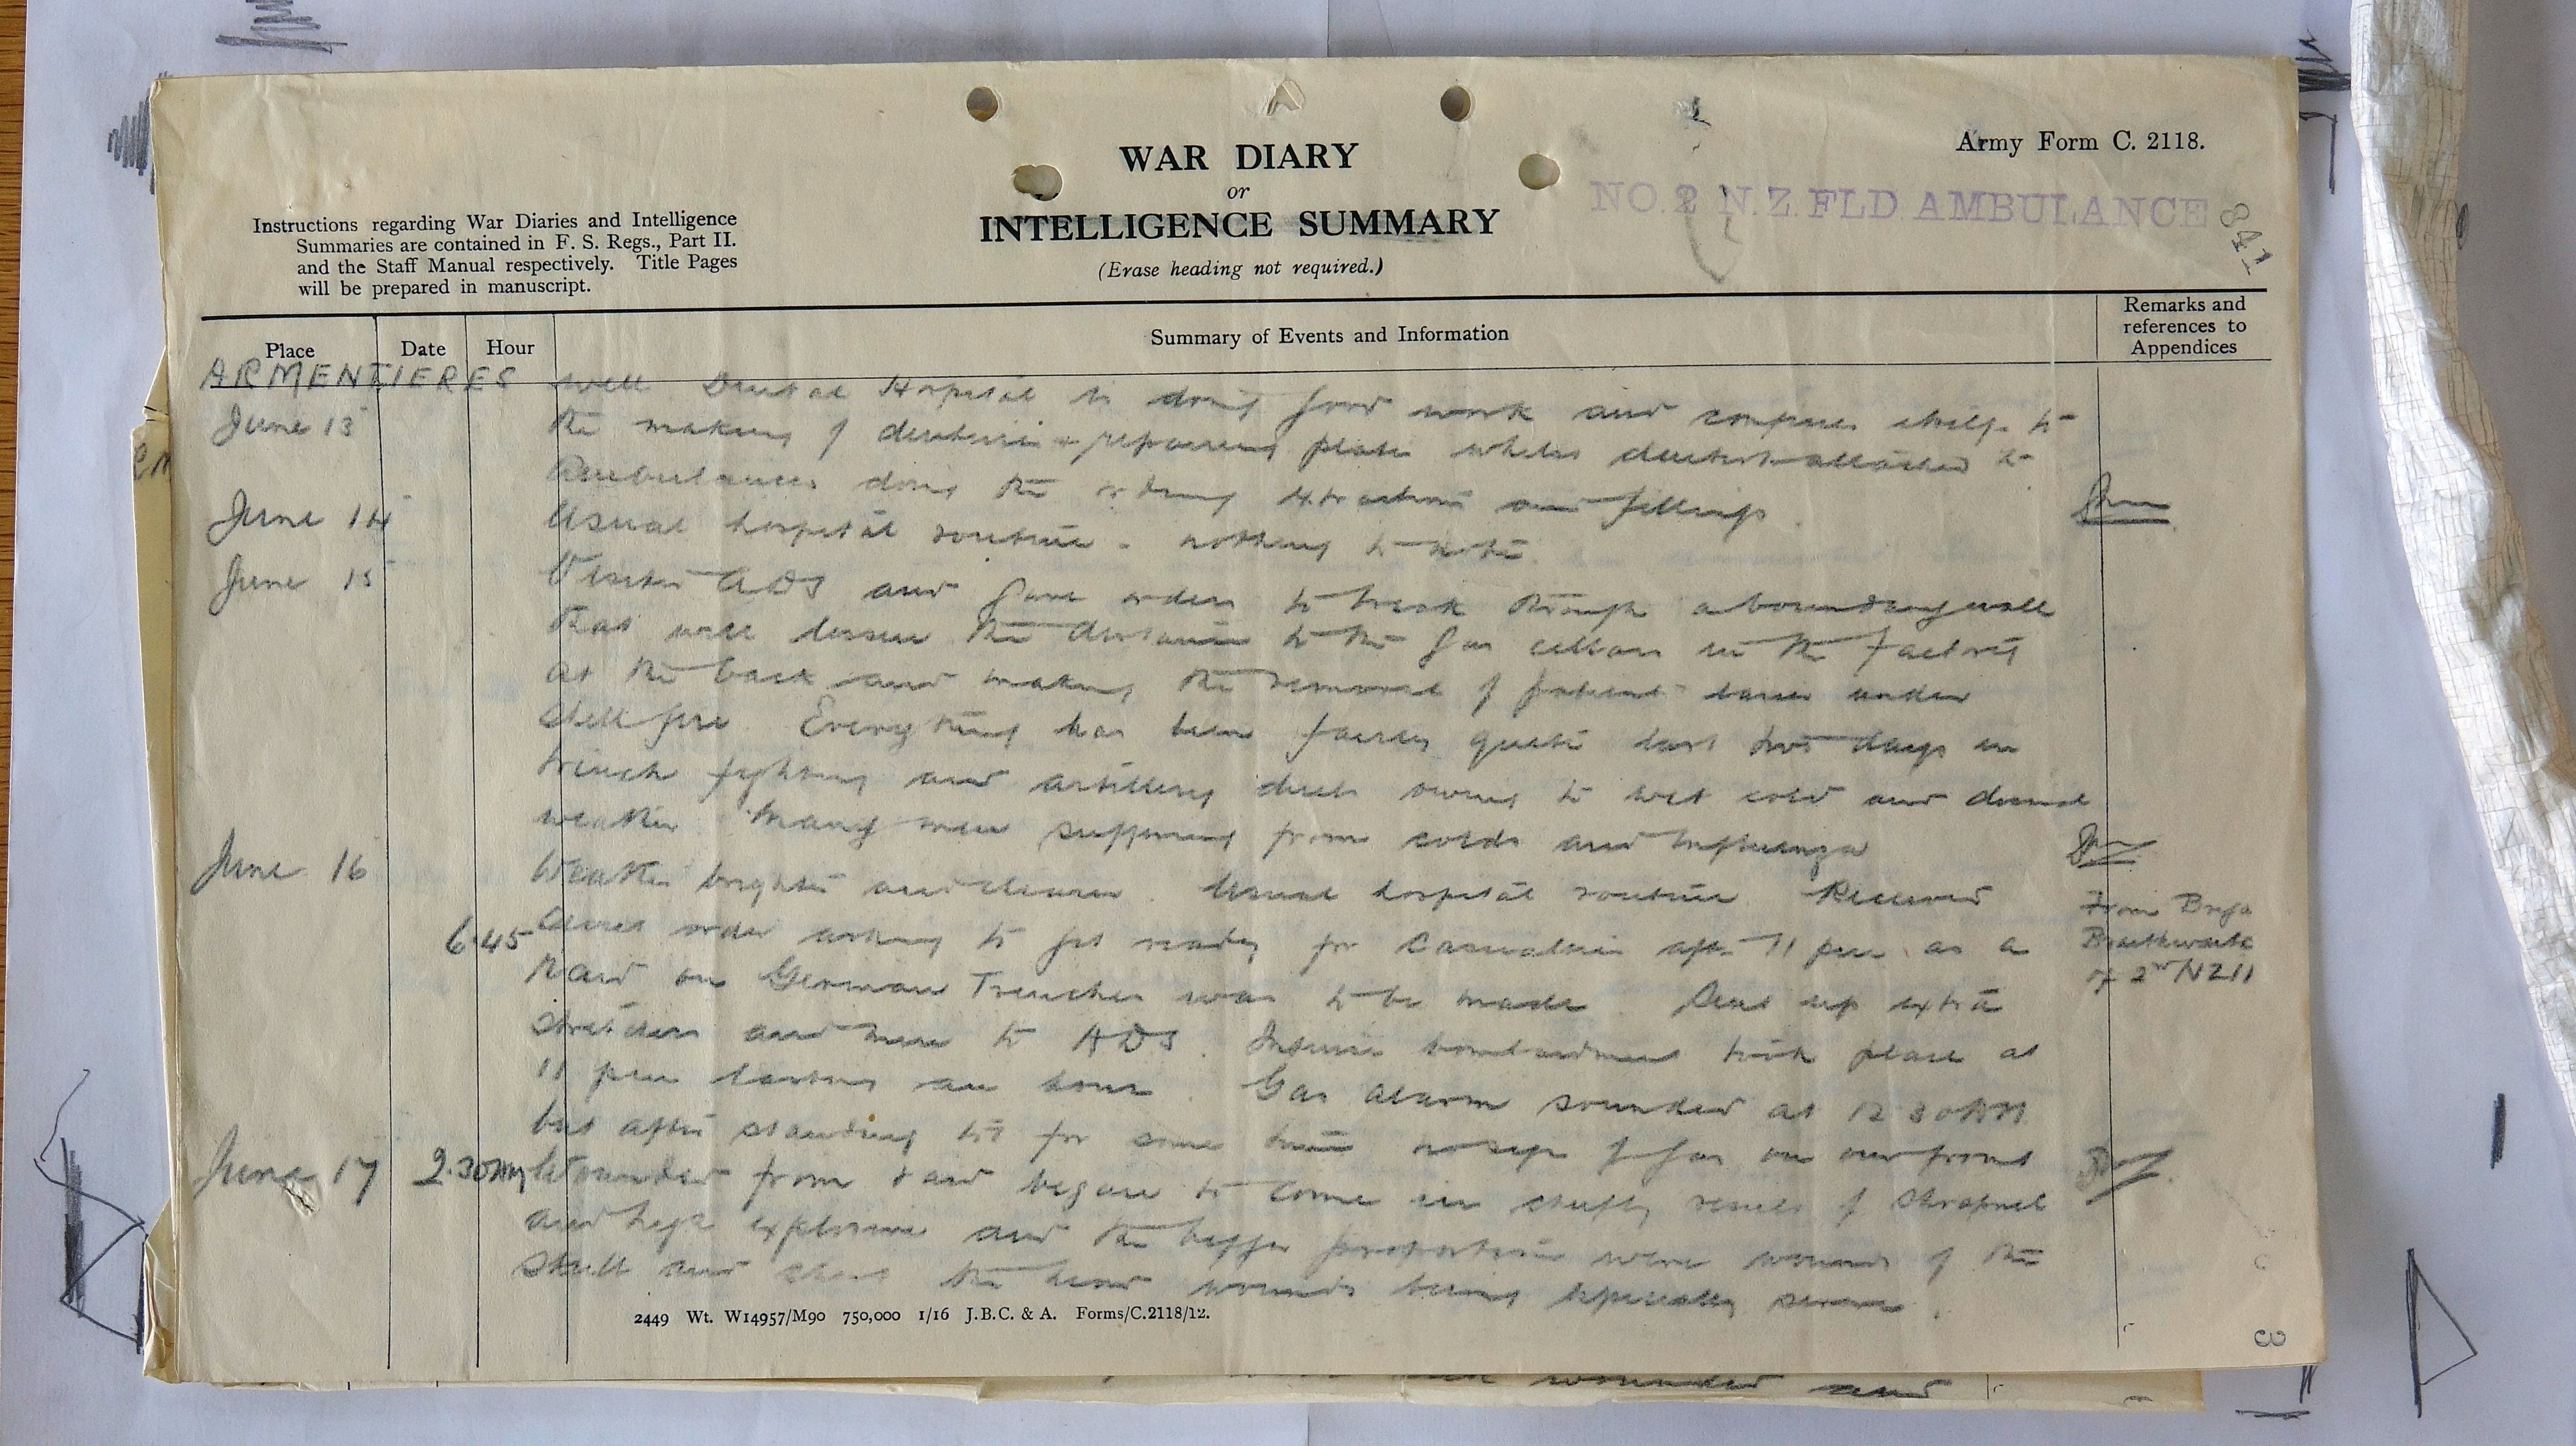 Army Form C. 2118.
WAR DIARY
or
INTELLIGENCE SUMMARY
(Erase heading not required.)
NO. 2 N.Z. FLD AMBULANCE
841
Instructions regarding War Diaries and Intelligence
Summaries are contained in F. S. Regs., Part II.
and the Staff Manual respectively. Title Pages
will be prepared in manuscript.
Place Date Hour Summary of Events and Information Remarks and references to Appendices
ARMENTIERES well Dental Hospital is doing good work and confines itself to
June 13 the making of dentures & repairing plates whilst dentists attached to
Ambulances doing the ordinary extractions and fillings.
June 14 Usual hospital routine - nothing to note
June 15 Visited ADS and gave orders to break through a boundary wall
that will lessen the distance to the gas cellars in the Factory
at the back and making the removal of patients easier under
shell fire. Everything has been fairly quiet last two days in
trench fighting and artillery duels owing to wet cold and dismal
weather Many men suffering from colds and Influenza
June 16 Weather brighter and clearer. Usual hospital routine Received
6.45 order asking to get ready for casualties after 11 pm as a
From Brig
Braithwaite
of 2nd NZ
Raid on German Trenches was to be made. Sent up extra
stretchers and men to ADS. Intense bombardment took place at
11 pm lasting an hour. Gas alarm sounded at 12 30 AM
but after standing to for some time no sign of gas on our front
June 17 2.30 am Wounded from raid began to come in chiefly result of Shrapnel
and high explosive and the bigger proportion were wounds of the
skull and chest the head wounds being especially severe.
2449 Wt. W14957/M90 750,000 1/16 J.B.C. & A. Forms/C.2118/12.
3
wounded and